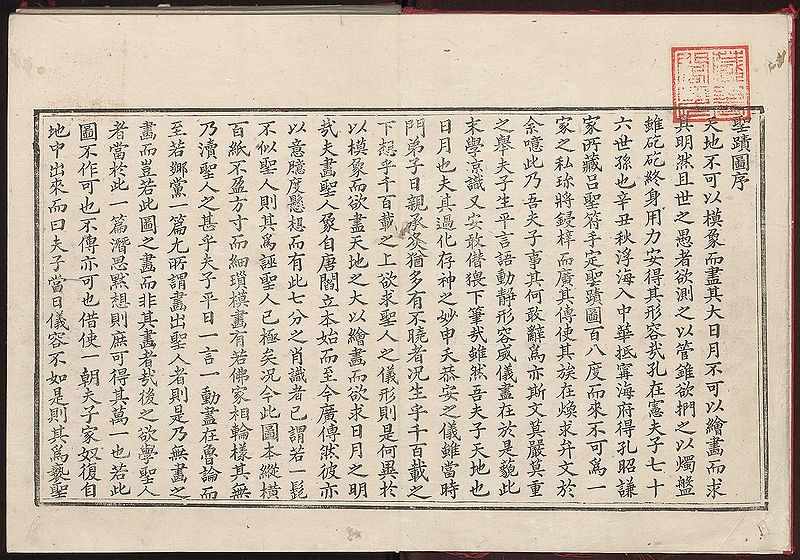 聖蹟圖序
天地不可以模象而盡其大日月不可以繪畫而求
其明然且世之愚者欲測之以管錐欲捫之以燭盤
雖矻矻終身用力安得其形容哉孔在憲夫子七十
六世孫也辛丑秋浮海入中華抵寧海府得孔昭謙
家所藏呂聖符手定聖蹟圖百八度而來不可爲一
家之私珎將鋟梓而廣其傳使其族在煥求弁文於
余噫此乃吾夫子事其何敢辭焉亦斯文莫嚴莫重
之舉夫子生平言語動靜形容威儀盡在於是藐此
末學京識又安敢僭猥下筆哉雖然吾夫子天地也
日月也夫其過化存神之妙申夭恭安之儀雖當時
門弟子日親承炙猶多有不曉者况生乎千百載之
下想乎千百載之上欲求聖人之儀形則是何異於
以模象而欲盡天地之大以繪畫而欲求日月之明
哉夫畫聖人象自唐閻立本始而至今廣傳然彼亦
以意臆度懸想而有此七分之肖識者已謂若一髭
不似聖人則其爲誣聖人已極矣况今此圖本縱橫
百紙不盈方寸而細瑣模畫有若佛家相輪樣其無
乃瀆聖人之甚乎夫子平日一言一動盡在魯論而
至若鄉黨一篇尤所謂畫出聖人者則是乃無畫之
畫而豈若此圖之畫而非其畫者哉後之欲學聖人
者當於此一篇潛思黙想則庶可得其萬一也若此
圖不作可也不傳亦可也借使一朝夫子家奴復自
地中出來而曰夫子當日儀容不如是則其爲褻聖